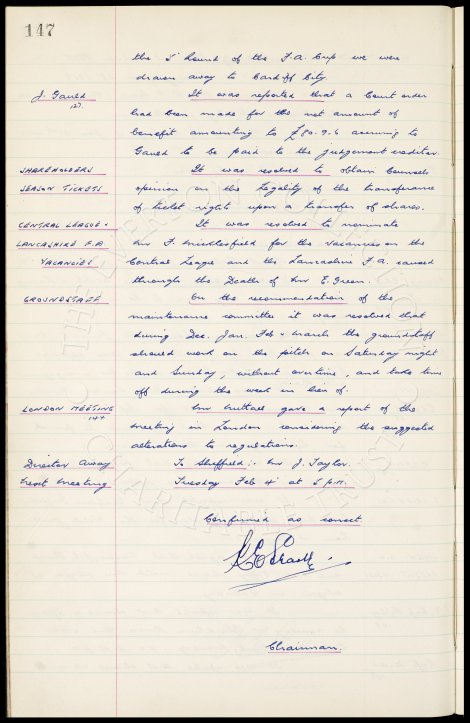 147
the 5th round of the F.A. Cup we were
drawn away to Cardiff City.
J. Gauld It was reported that a Court order
127. had been made for the net amount of
benefit amounting to £80-9-6 accruing to
Gauld to be paid to the judgement creditor.
SHAREHOLDERS It was resolved to obtain Counsels
SEASON TICKETS opinion on the legality of the transferance
of ticket rights upon a transfer of shares.
CENTRAL LEAGUE & It was resolved to nominate
LANCASHIRE F.A. Mr F. Micklesfield for the vacancies on the
VACANCIES Central League and the Lancashire F.A. caused
through the Death of Mr E. Green.
GROUNDSTAFF On the recommendation of the
maintenance committee it was resolved that
during Dec. Jan. Feb & March the groundstaff
should work on the pitch on Saturday night
and Sunday, without overtime, and take time
off during the week in lieu of.
LONDON MEETING Mr Nuttall gave a report of the
144 meeting in London considering the suggested
alterations to regulations.
Director Away To Sheffield:- Mr J. Taylor.
Next meeting Tuesday Feb 4th at 5 p.m.
Confirmed as correct
Chairman.
THE EVERTON COLLECTION
CHARITABLE TRUST